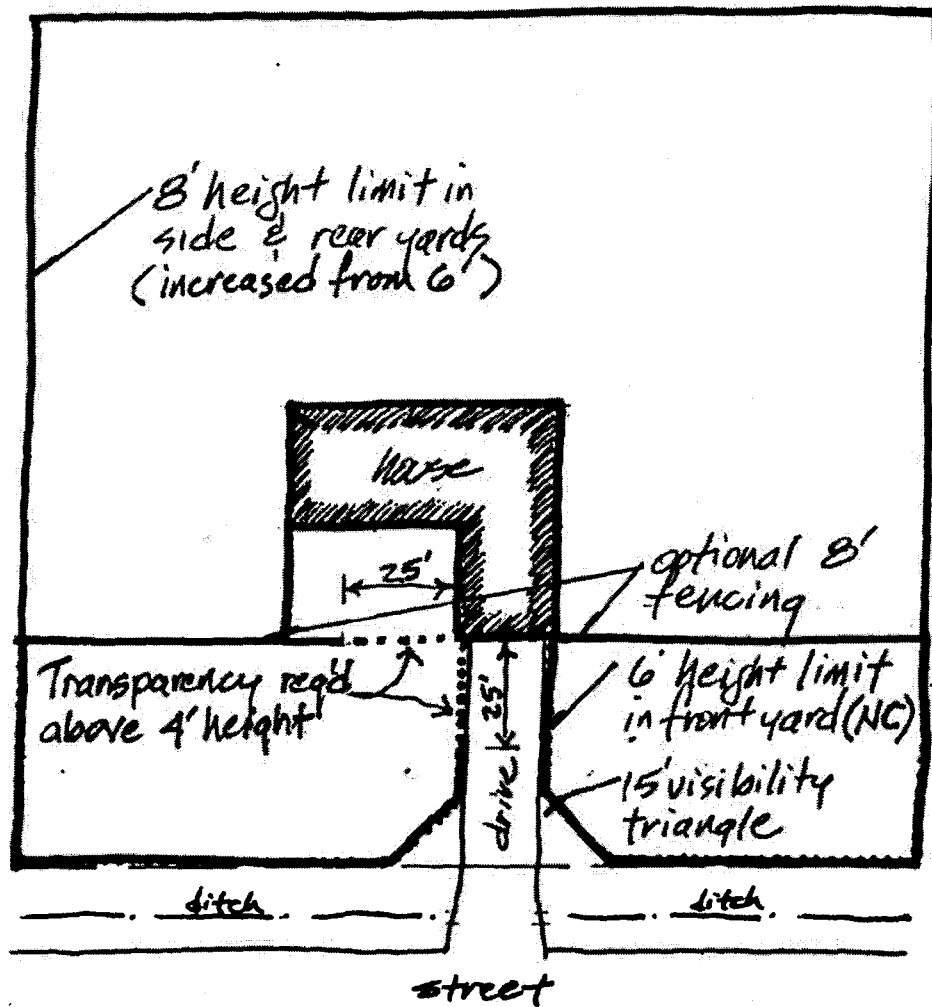 8' height limit in
side & rear yards
(increased from 6')
house
25'
optional 8'
fencing
Transparency req'd
above 4' height
25'
drive
6' height limit
in front yard (NC)
15' visibility
triangle
ditch
ditch
street